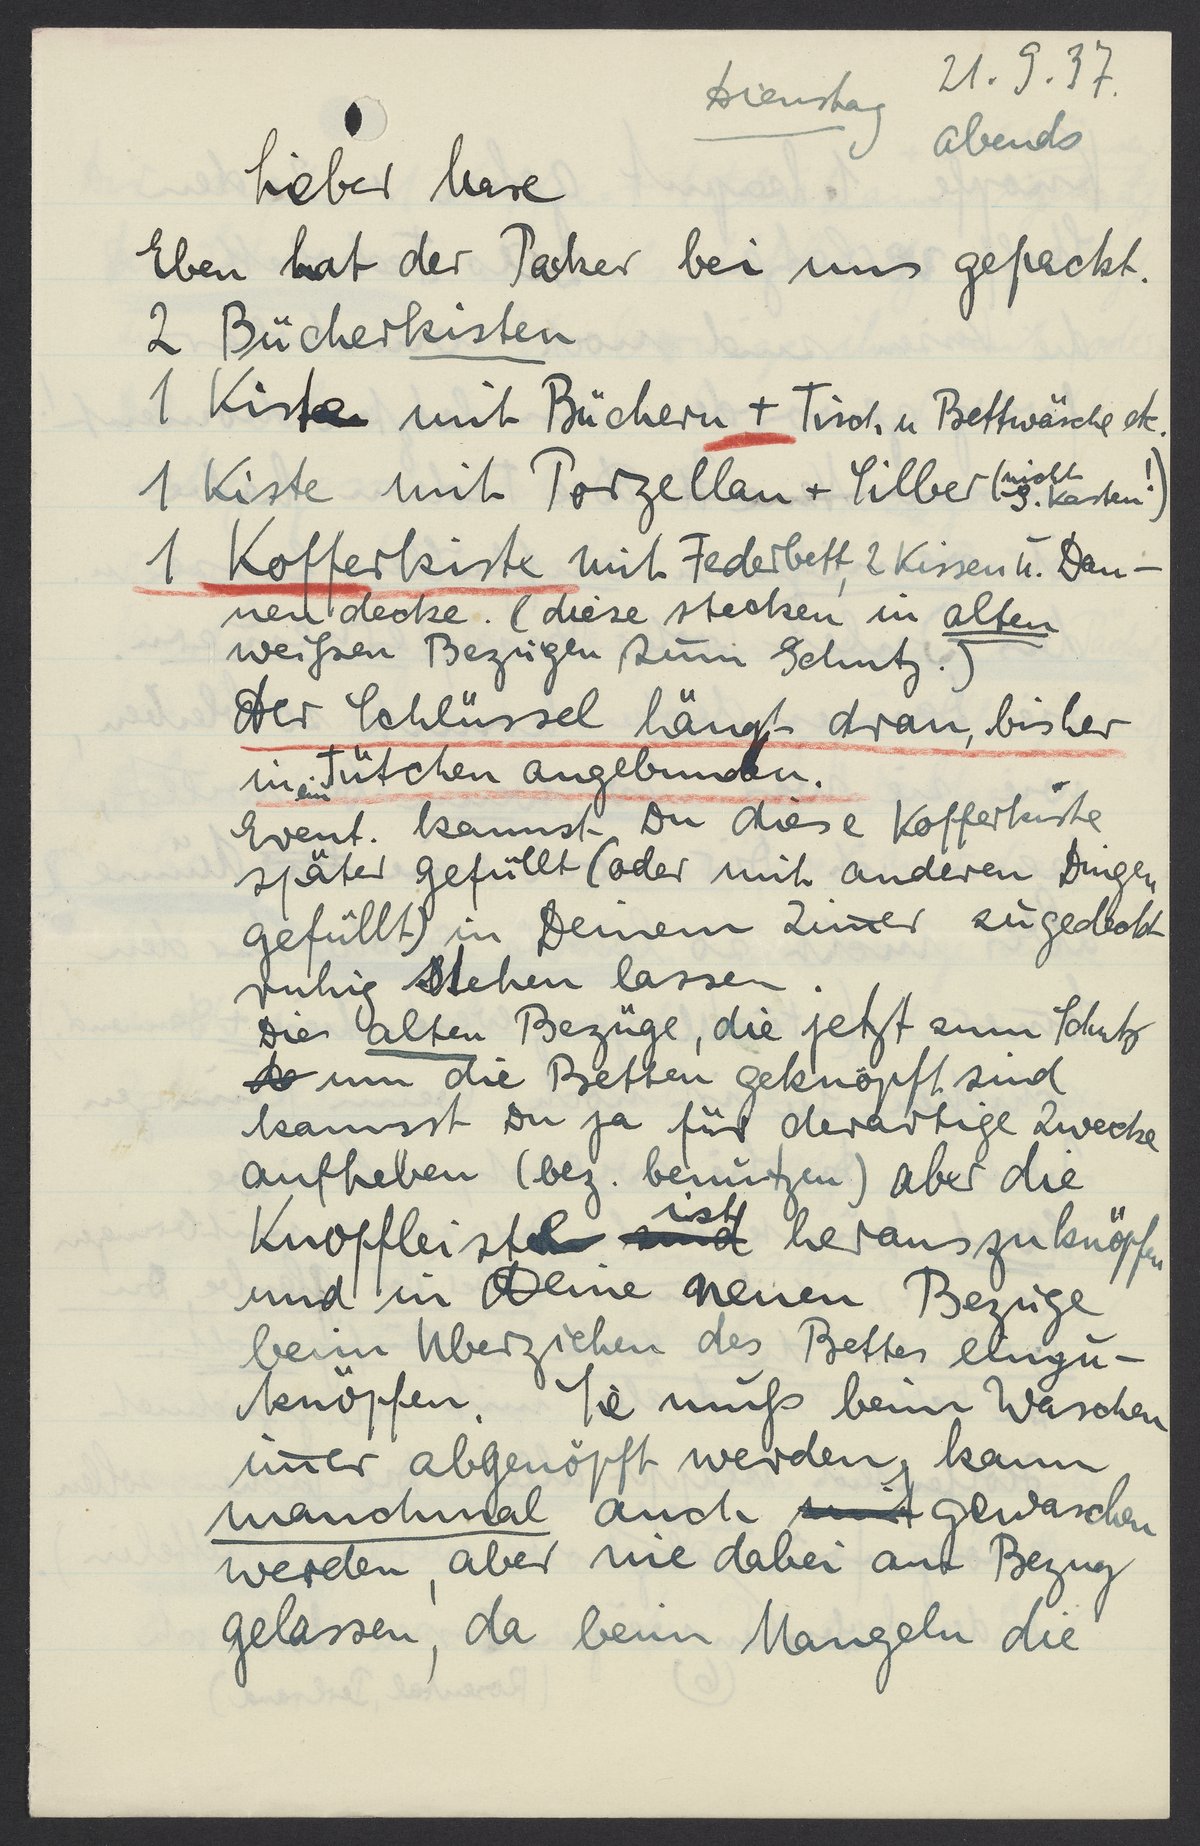 Dienstag 21.9.37.
abends
Lieber Hase
Eben hat der Packer bei uns gepackt.
2 Bücherkisten
1 Kiste mit Büchern + Tisch u Bettwäsche etc.
1 Kiste mit Porzellan + Silber (nicht S. Kasten!)
1 Kofferkiste mit Federbett, 2 Kissen u. Dau-
nendecke. (diese stecken in alten
weißen Bezügen zum Schutz.)
Der Schlüssel hängt dran, bisher
in ein Tütchen angebunden.
Event. kannst Du diese Kofferkiste
später gefüllt (oder mit anderen Dingen
gefüllt) in Deinem Zim̅er zugedeckt
ruhig stehen lassen.
Die alten Bezüge, die jetzt zum Schutz
um die Betten geknöpft sind
kannsst Du ja für derartige Zwecke
aufheben (bez. benutzen) aber die
Knopfleiste sind ist herauszuknöpfen
und in Deine neuen Bezüge
beim Überziehen des Bettes einzu-
knöpfen. Sie muß beim Waschen
im̅er abgenöpft werden, kann
manchmal auch mit gewaschen
werden, aber nie dabei am Bezug
gelassen, da beim Mangeln die